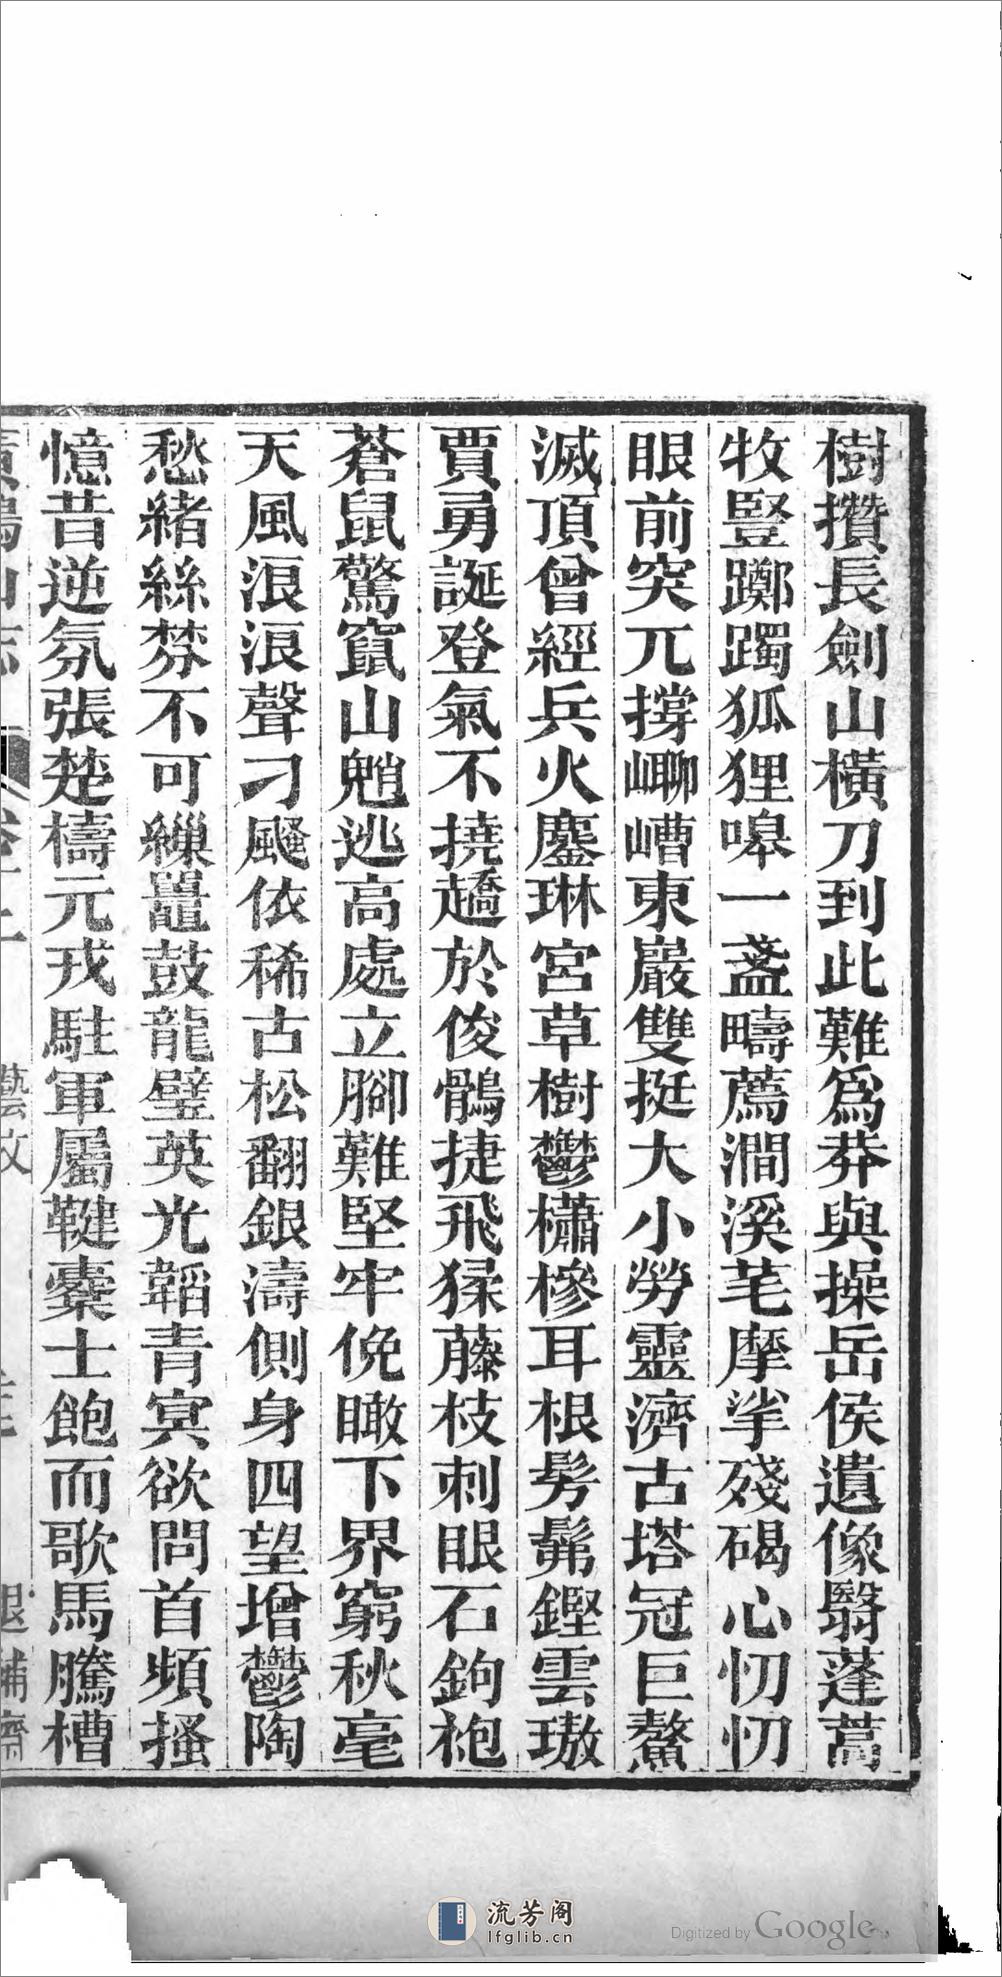 樹攢長劍山橫刀到此難爲莽與操岳侯遺像翳蓬蒿
牧豎躑躅狐狸嗥一盞疇薦澗溪芼摩挲殘碣心忉忉
眼前突兀撐嶙嶆東巖雙挺大小勞靈濟古塔冠巨鼇
滅頂曾經兵火鏖琳宮草樹鬱櫹槮耳根髣髴鏗雲璈
賈勇誕登氣不撓趫於俊鶻捷飛猱藤枝刺眼石鉤袍
蒼鼠驚竄山魈逃高處立腳難堅牢俛瞰下界窮秋毫
天風浪浪聲刁颾依稀古松翻銀濤側身四望增鬱陶
愁緒絲棼不可繅鼉鼓龍璧英光韜青冥欲問首頻搔
憶昔逆氛張楚檮元戎駐軍屬鞬櫜士飽而歌馬騰槽
藝文
退補齋
流芳阁
lfglib.cn
Digitized by Google